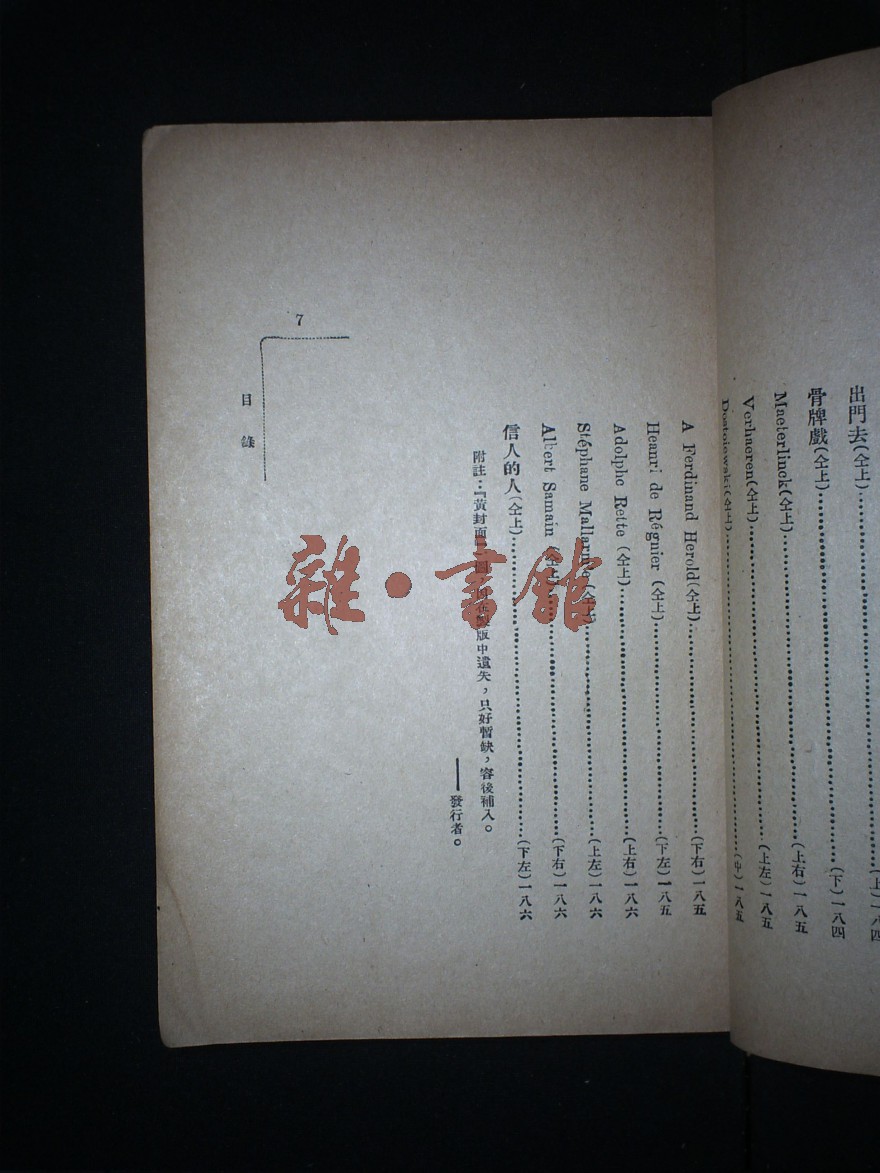 出門去(仝上)……(上)一八四
骨牌戲(仝上)……(下)一八四
Maeterlinck(仝上)……(上右)一八五
Verhaeren(仝上)……(上左)一八五
Dostoiewski(仝上)……(中)一八五
A Ferdinand Herold(仝上)……(下右)一八五
Heanri de Régnier(仝上)……(下左)一八五
Adolphe Rette(仝上)……(上右)一八六
Stéphane Mallarmée(仝上)……(上左)一八六
Albert Samain(仝上)……(下右)一八六
信人的人(仝上)……(下左)一八六
附註:『黃封面』圖,因在製版中遺失,只好暫缺,容後補入。
——發行者。
目錄
7
雜·書館